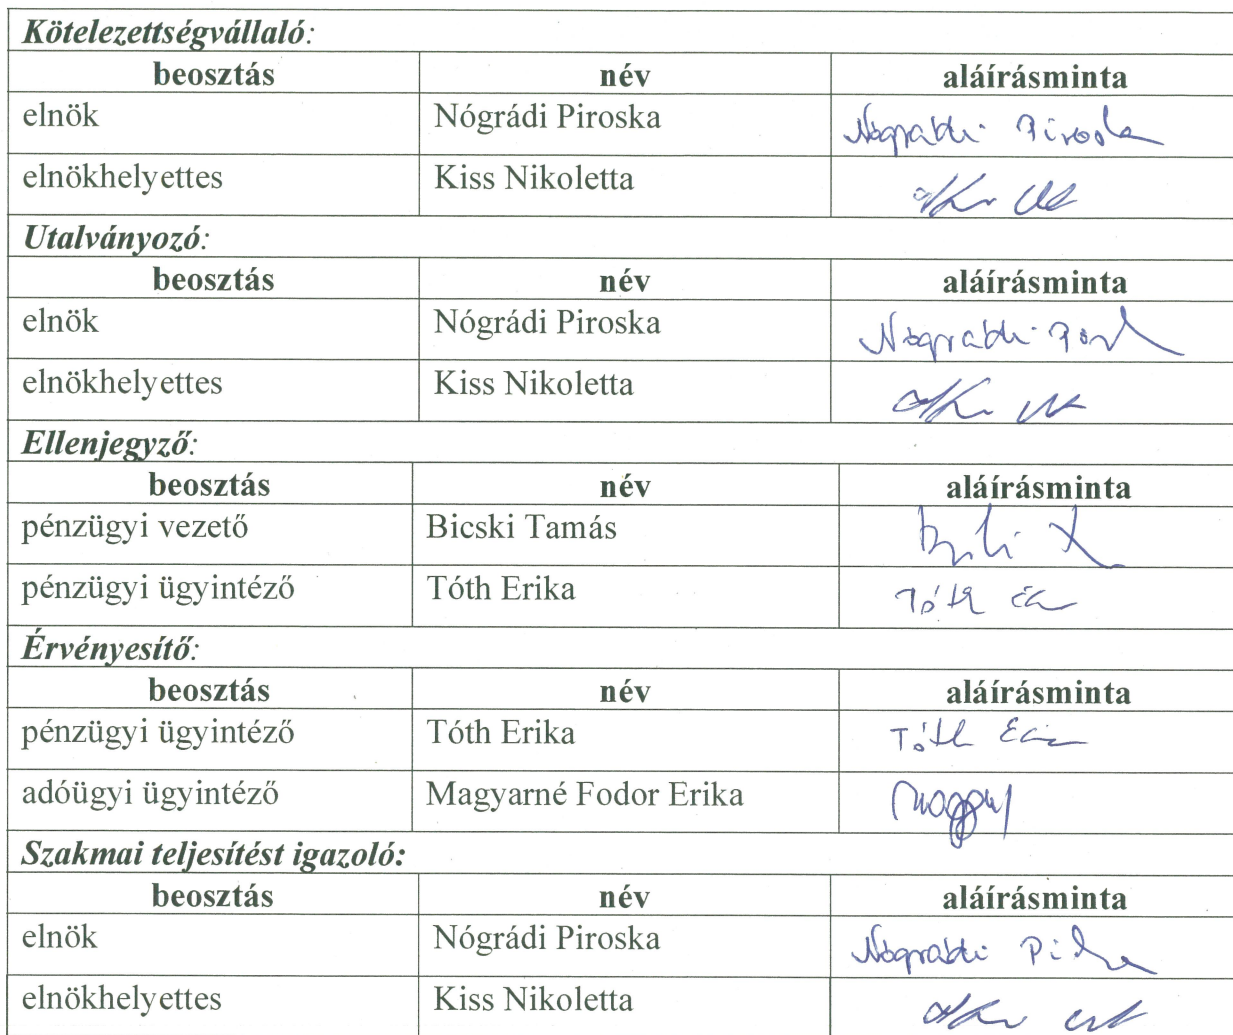 Kötelezettségvállaló:
beosztás név aláírásminta
elnök Nógrádi Piroska Nógrádi Piroska
elnökhelyettes Kiss Nikoletta
Utalványozó:
beosztás név aláírásminta
elnök Nógrádi Piroska Nógrádi
elnökhelyettes Kiss Nikoletta
Ellenjegyző:
beosztás név aláírásminta
pénzügyi vezető Bicski Tamás
pénzügyi ügyintéző Tóth Erika Tóth
Érvényesítő:
beosztás név aláírásminta
pénzügyi ügyintéző Tóth Erika Tóth
adóügyi ügyintéző Magyarné Fodor Erika
Szakmai teljesítést igazoló:
beosztás név aláírásminta
elnök Nógrádi Piroska Nógrádi
elnökhelyettes Kiss Nikoletta